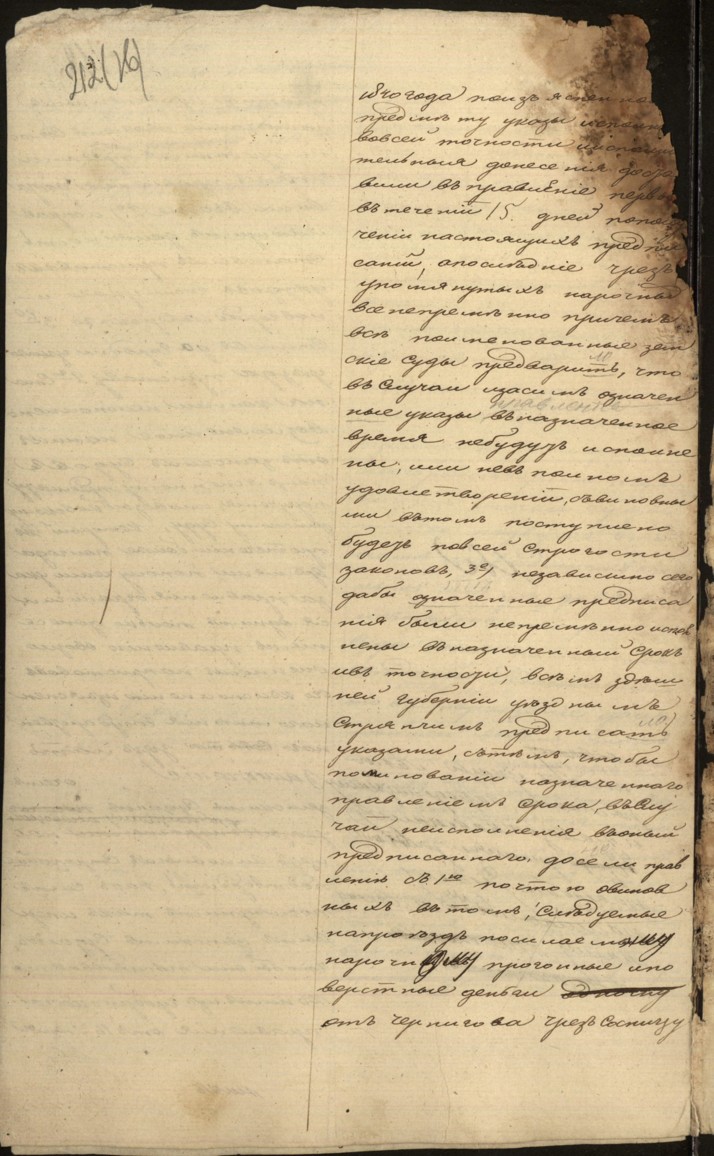 212(Иб)
1840 года поизъяснен
предмѣту указы исполн
вовсей точности
тельныя донесенія доста
вили въправленіе первы
въ теченіи 15. дней пополу
ченіи настоящихъ предпи
саній, апослѣдніе чрезъ
упомянутыхъ нарочны
всенепремѣнно причемъ
всѣ поименованные зем
скіе суды предварить, что
въ случаи изасимъ означен
ные указы въназначенное
время небудутъ исполне
ны, или невъ полномъ
удовлетвореніи, съвиновны
ми вътомъ поступлено
будетъ повсей строгости
законовъ, 3е) независимо сего
дабы означенные предписа
нія были непремѣнно испол
нены въназначенный срокъ
ивъ точности, всѣмъ здѣш
ней губерніи уѣзднымъ
Стряпчимъ предписать
указами, сътѣмъ, чтобы
поминованіи назначеннаго
правленіемъ срока, въслу
чаи неисполненія въоный
предписаннаго, доселили прав
ленію съ 1ю почтою овинов
ныхъ вътомъ, Слѣдуемые
напроѣздъ посилаемому
нарочному прогонные ипо
верстные деньги
отъ чернигова чрезъ Сосницу